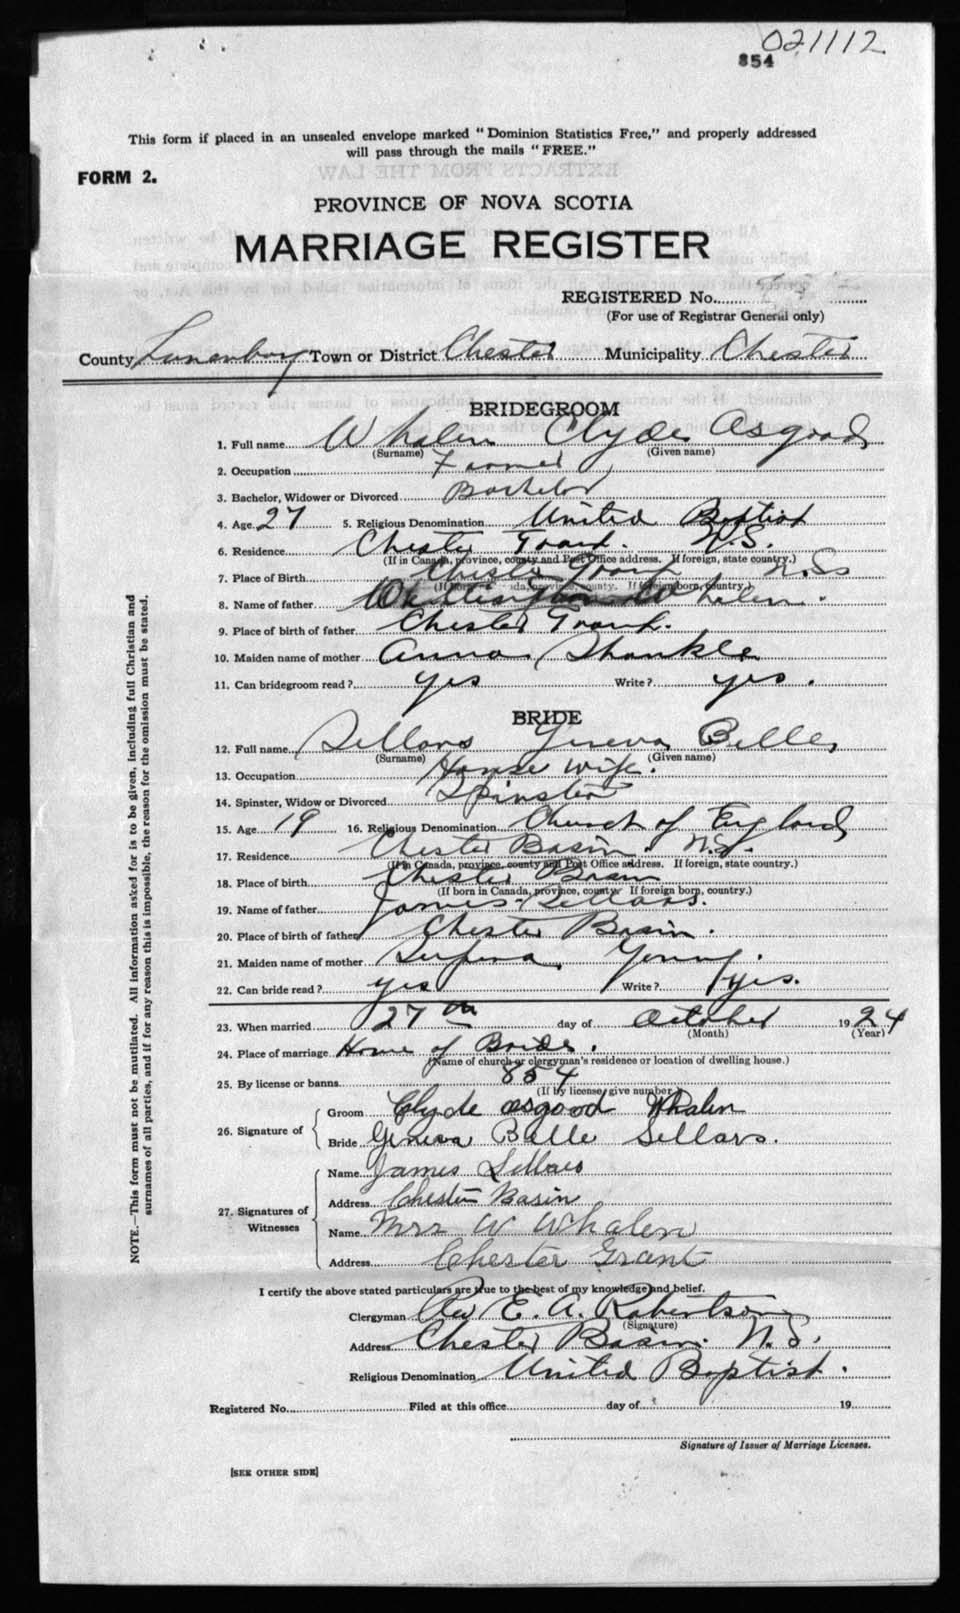 021112
854
This form if placed in an unsealed envelope marked "Dominion Statistics Free," and properly addressed
will pass through the mails "FREE."
FORM 2.
PROVINCE OF NOVA SCOTIA
MARRIAGE REGISTER
REGISTERED No.
(For use of Registrar General only)
County Lunenburg Town or District Chester Municipality Chester
BRIDEGROOM
1. Full name Whalen Clyde Osgood
(Surname) (Given name)
2. Occupation Farmer
3. Bachelor, Widower or Divorced Bachelor
4. Age 27 5. Religious Denomination United Baptist
6. Residence Chester Grant. N.S.
(If in Canada, province, county and Post Office address. If foreign, state country.)
7. Place of Birth Chester Grant N.S.
(If born in Canada, province, county. If foreign born, country.)
8. Name of father Whalen.
9. Place of birth of father Chester Grant.
10. Maiden name of mother Anna Shankle
11. Can bridegroom read? yes Write? yes.
BRIDE
12. Full name Sellars Geneva Belle
(Surname) (Given name)
13. Occupation House wife.
14. Spinster, Widow or Divorced Spinster
15. Age 19 16. Religious Denomination Church of England
17. Residence Chester Basin. N.S.
(If in Canada, province, county and Post Office address. If foreign, state country.)
18. Place of birth Chester Basin
(If born in Canada, province, county If foreign born, country.)
19. Name of father James Sellars.
20. Place of birth of father Chester Basin.
21. Maiden name of mother Young.
22. Can bride read? yes Write? yes.
23. When married 27th day of October 1924
(Month) (Year)
24. Place of marriage Home of Bride.
(Name of church or clergyman's residence or location of dwelling house.)
25. By license or banns 854
(If by license, give number.)
26. Signature of Groom Clyde Osgood Whalen
Bride Geneva Belle Sellars.
27. Signatures of Witnesses Name James Sellars
Address Chester Basin
Name Mrs W Whalen
Address Chester Grant
I certify the above stated particulars are true to the best of my knowledge and belief.
Clergyman Rev E. A. Robertson
(Signature)
Address Chester Basin. N.S.
Religious Denomination United Baptist.
Registered No. Filed at this office day of 19
Signature of Issuer of Marriage Licenses.
[SEE OTHER SIDE]
NOTE.—This form must not be mutilated. All information asked for is to be given, including full Christian and
surnames of all parties, and if for any reason this is impossible, the reason for the omission must be stated.